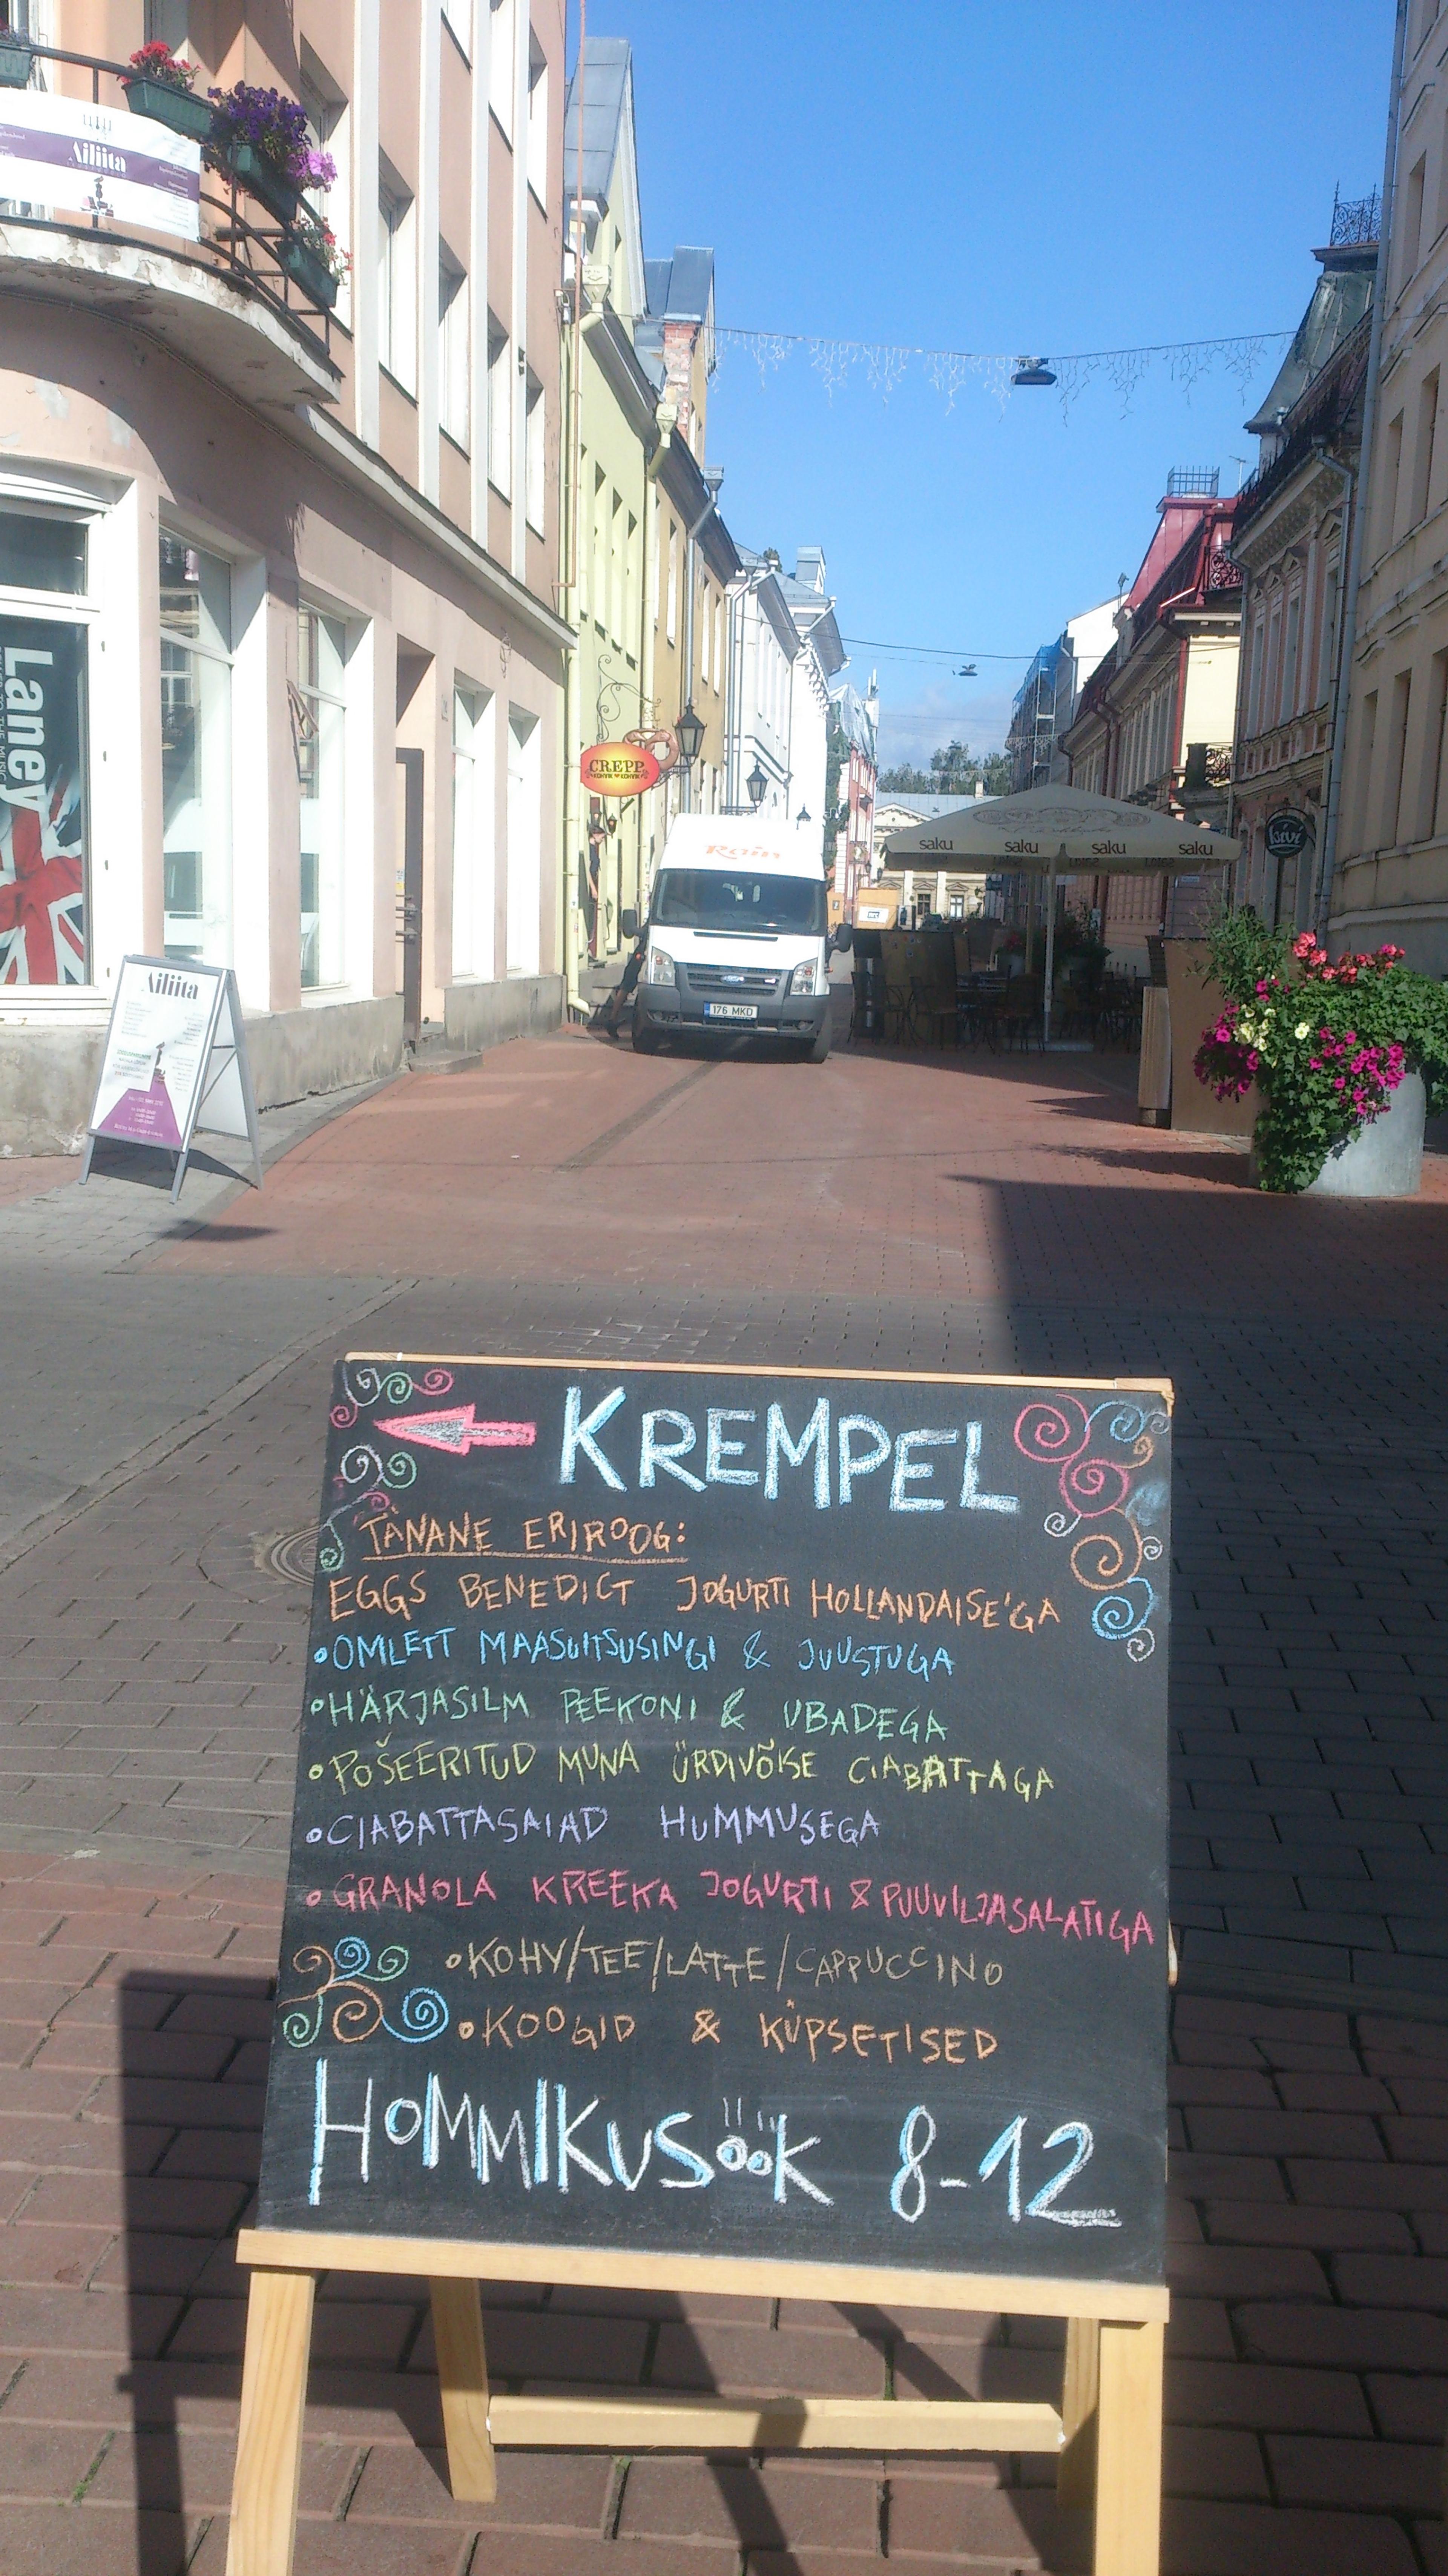 Ailiita
Laney
CREPP
KOHVIK KOHVIK
Rain
saku saku saku saku
kivi
176 MKD
Ailiita
KREMPEL
TÄNANE ERIROOG:
EGGS BENEDICT JOGURTI HOLLANDAISE'GA
•OMLETT MAASUITSUSINGI & JUUSTUGA
•HÄRJASILM PEEKONI & UBADEGA
•POŠEERITUD MUNA ÜRDIVÕISE CIABATTAGA
•CIABATTASAIAD HUMMUSEGA
•GRANOLA KREEKA JOGURTI & PUUVILJASALATIGA
•KOHV/TEE/LATTE/CAPPUCCINO
•KOOGID & KÜPSETISED
HOMMIKUSÖÖK 8-12